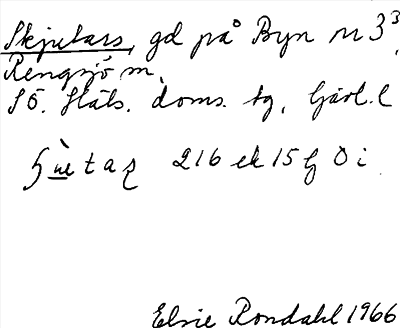 Skjutars, gd på Byn nr 3³,
Rengsjö sn,
Sö. Häls. doms. tg, Gävl. l
216 ek 15 G Ö i
Elsie Rondahl 1966